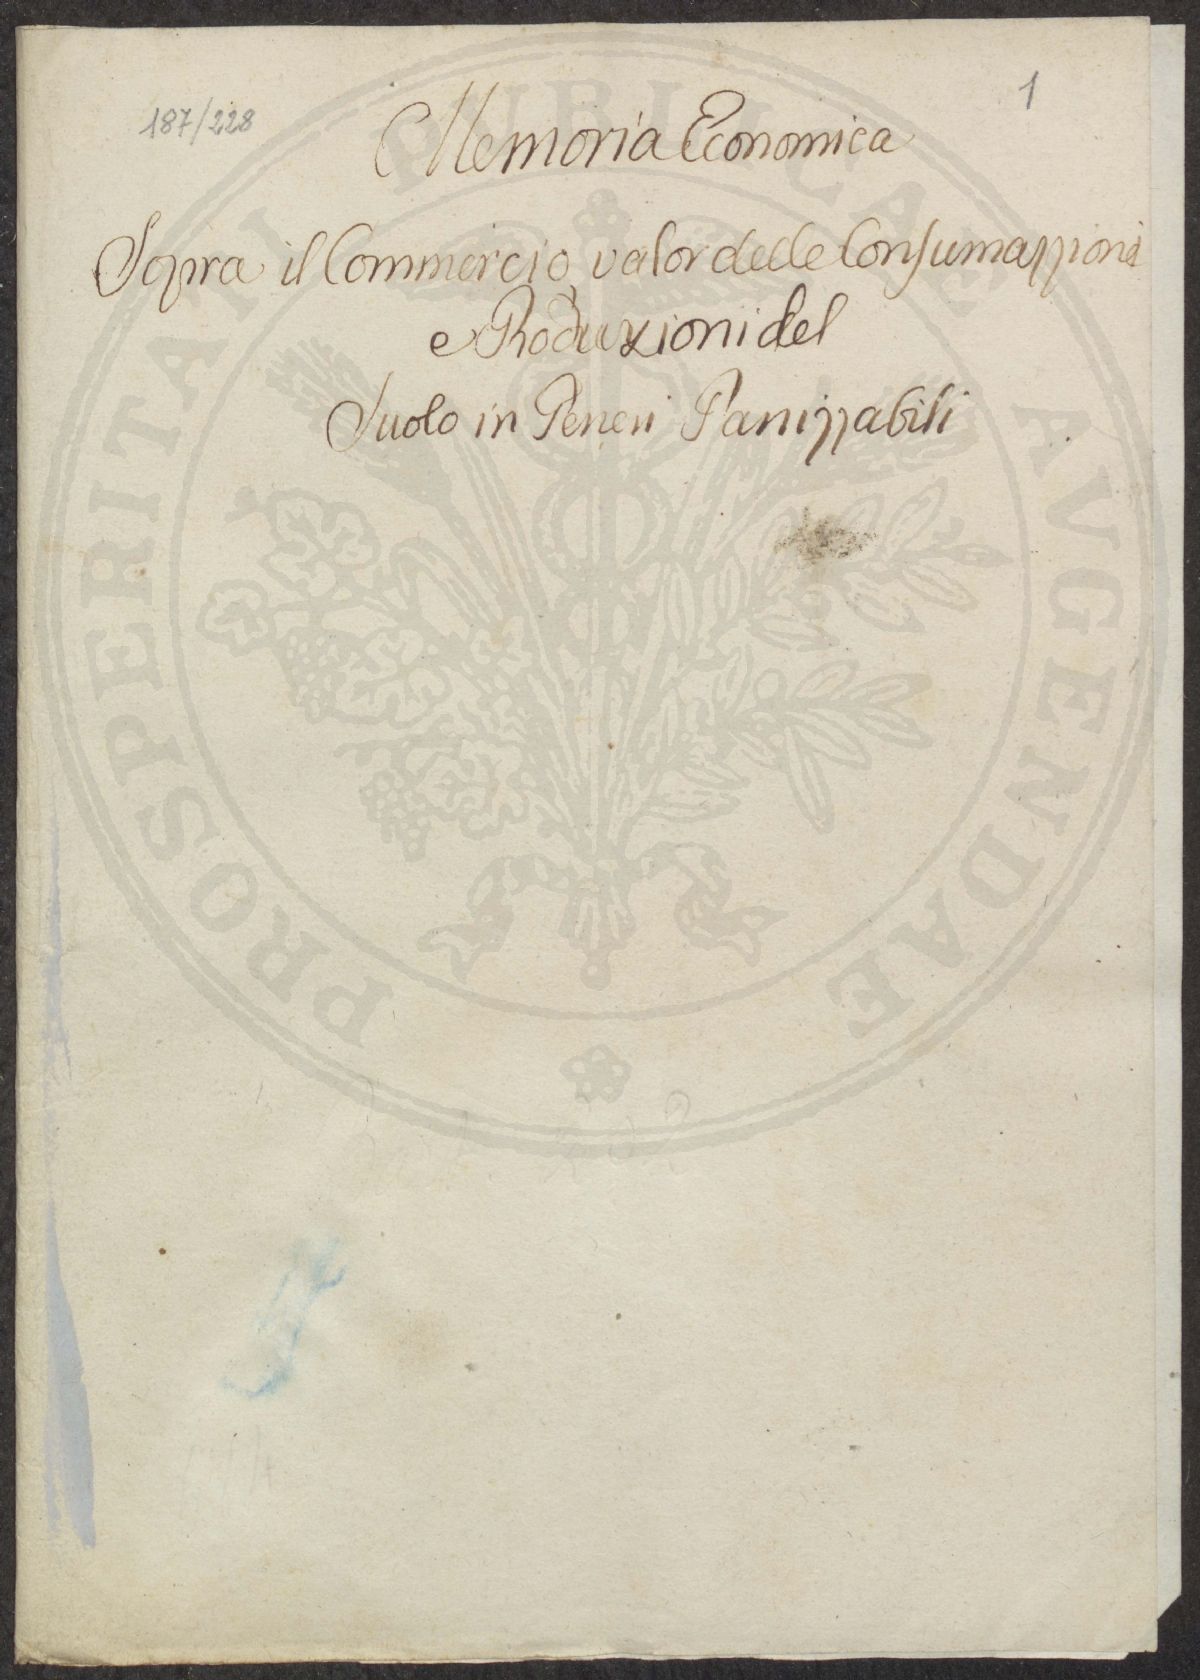 187/228
1
Memoria Economica
Sopra il Commercio, valor delle Consumazzioni
e Produzioni del
Suolo in Generi Panizzabili
PROSPERITATI PUBLICAE AVGENDAE